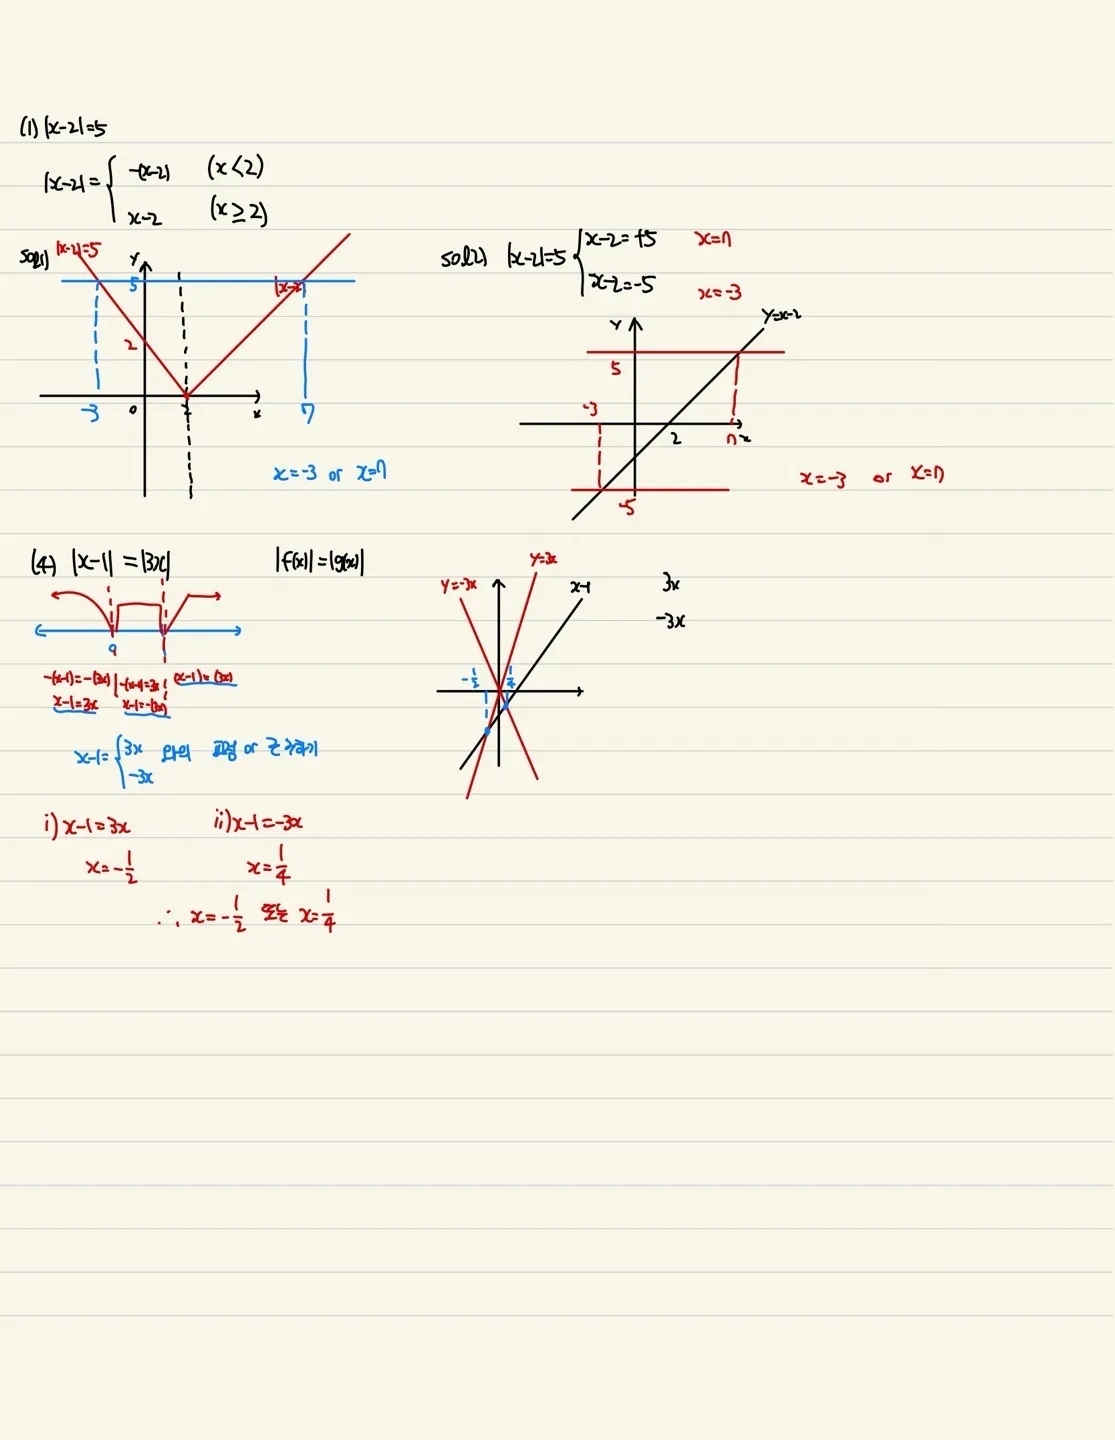 (1) |x-2|=5
|x-2|= { -(x-2) (x<2)
x-2 (x≥2)
sol1) |x-2|=5
y
5
2
-3 0 2 x 7
x=-3 or x=7
sol2) |x-2|=5 { x-2=+5 x=7
x-2=-5 x=-3
y y=x-2
5
-3
2 7 x
-5
x=-3 or x=7
(4) |x-1|=|3x| |f(x)|=|g(x)|
0 1
-(x-1)=-(3x) -(x-1)=3x (x-1)=(3x)
x-1=3x x-1=-(3x)
x-1= { 3x 와의 교점 or 근 구하기
-3x
y=-3x y=3x x-1 3x
-3x
-1/2 1/4
i) x-1=3x ii) x-1=-3x
x=-1/2 x=1/4
∴ x=-1/2 또는 x=1/4